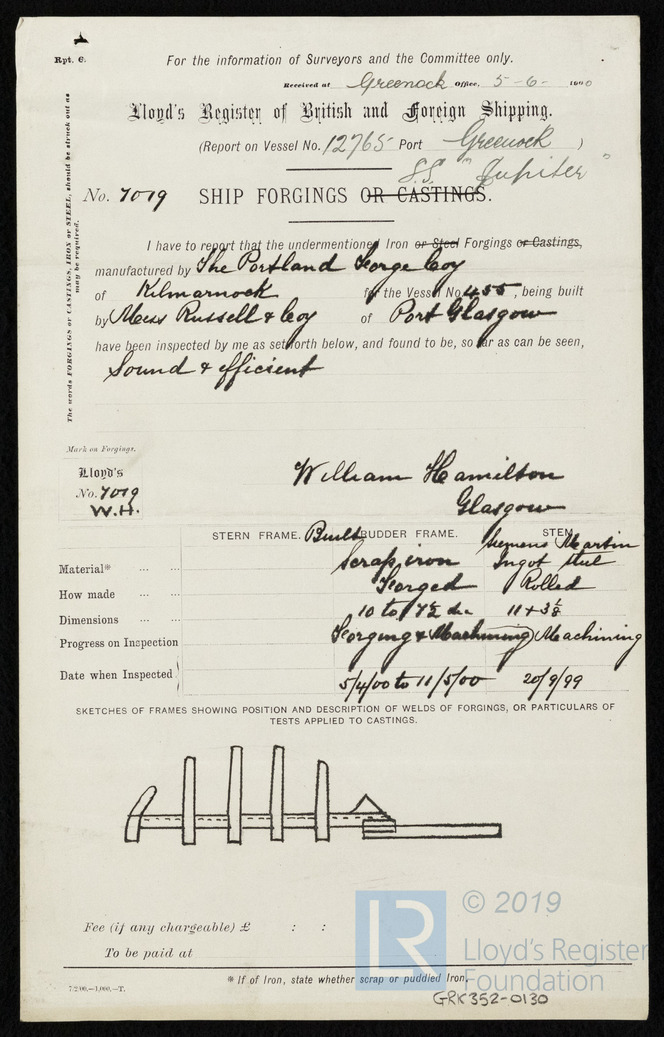 Rpt. 6.
For the information of Surveyors and the Committee only.
Received at Greenock Office, 5-6- 1900
Lloyd's Register of British and Foreign Shipping.
(Report on Vessel No. 12765 Port Greenock )
S.S. "Jupiter"
No. 7019 SHIP FORGINGS OR CASTINGS.
The words FORGINGS or CASTINGS, IRON or STEEL, should be struck out as may be required.
I have to report that the undermentioned Iron or Steel Forgings or Castings,
manufactured by The Portland Forge Coy
of Kilmarnock for the Vessel No. 455, being built
by Mess Russell & Coy of Port Glasgow
have been inspected by me as set forth below, and found to be, so far as can be seen,
Sound & efficient
Mark on Forgings.
Lloyd's
No. 7019
W.H.
William Hamilton
Glasgow
STERN FRAME. Built RUDDER FRAME. STEM
Material* ... ... Scrap iron Siemens Martin Ingot steel
How made ... ... Forged Rolled
Dimensions ... ... 10 to 7½ dia 11 + 3⅛
Progress on Inspection Forging & Machining Machining
Date when Inspected 5/4/00 to 11/5/00 20/9/99
SKETCHES OF FRAMES SHOWING POSITION AND DESCRIPTION OF WELDS OF FORGINGS, OR PARTICULARS OF
TESTS APPLIED TO CASTINGS.
Fee (if any chargeable) £ : :
To be paid at
* If of Iron, state whether scrap or puddled Iron.
7/2/00.—1,000.—T.
GRK352-0130
LR
© 2019
Lloyd's Register
Foundation